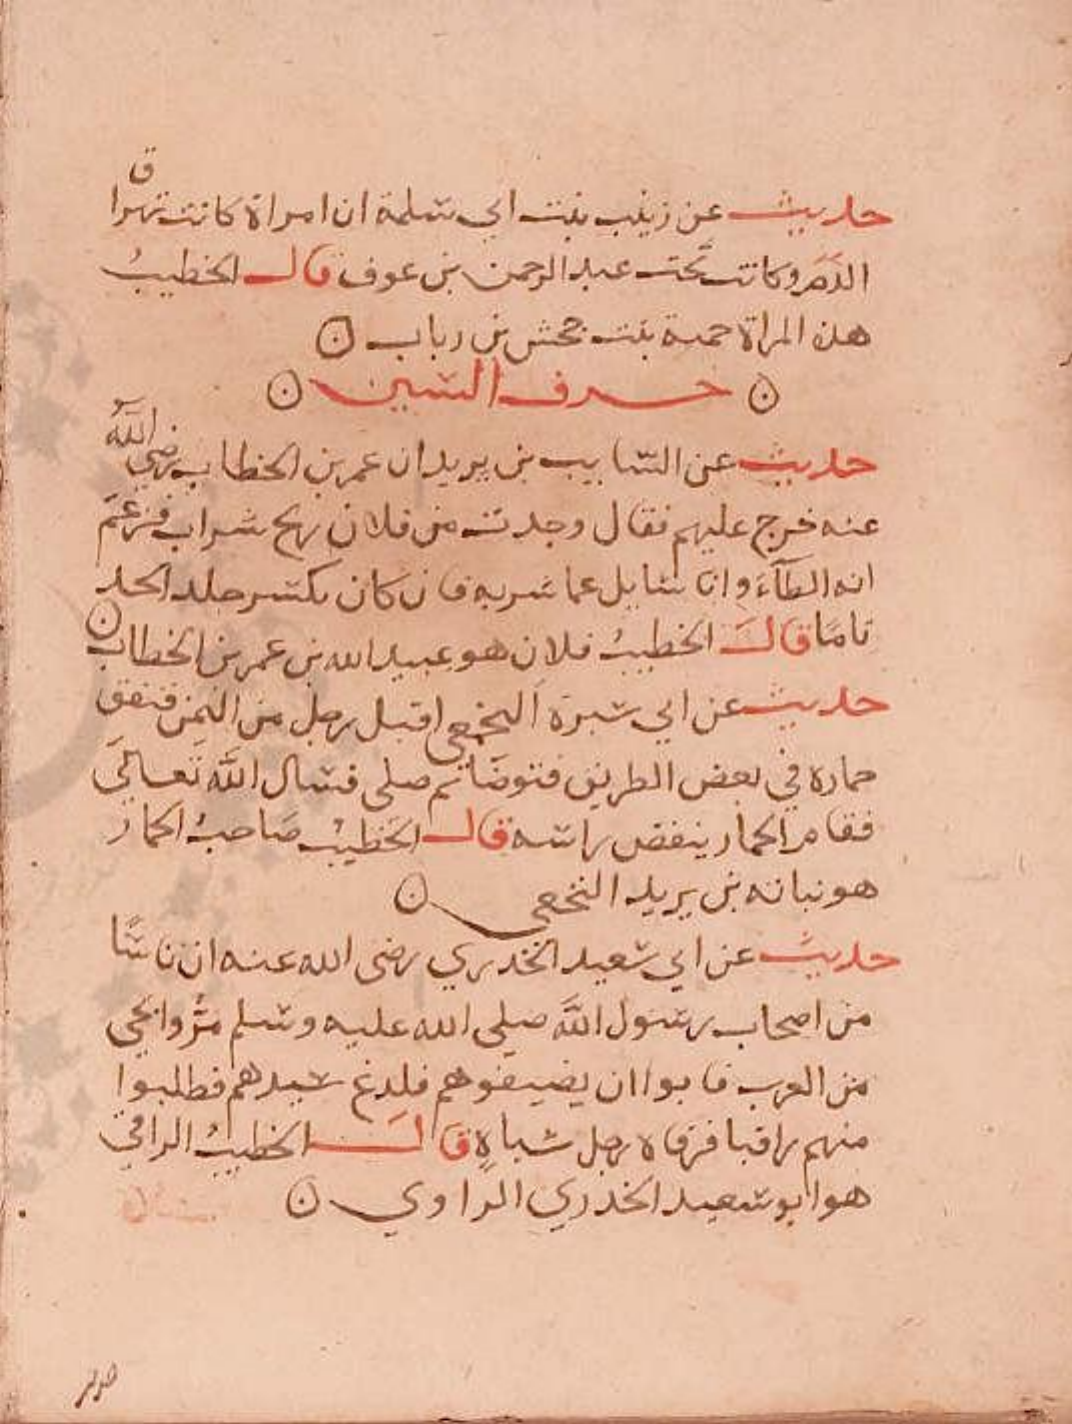 حديث عن زينب بنت ابي سلمة ان امراة كانت تهراق
الدم وكانت تحت عبد الرحمن بن عوف قال الخطيبُ
هذه المراة حمنة بنت جحش بن رباب ن
ن حرف السين ن
حديث عن السايب بن يزيد ان عمر بن الخطاب رضي اللهُ
عنه خرج عليهم فقال وجدت من فلان ريح شراب فزعم
انه الطلآءَ وانا سايل عما شربه فان كان يسكر جلد الحد
تامًا قالَ الخطيبُ فلان هو عبيد الله بن عمر بن الخطاب ن
حديث عن ابي سبرة النخعي اقبل رجل من اليمن فنفق
حماره في بعض الطريق فتوضا ثم صلى فسال اللهَ تعالى
فقام الحمار ينفض راسه قال الخطيبُ صَاحبُ الحمار
هو نباته بن يزيد النخعي ن
حديث عن ابي سعيد الخدري رضى الله عنه ان ناسًا
من اصحاب رسول اللهَ صلى الله عليه وسلم مرُّوا بحي
من العرب فابوا ان يضيفوهم فلدغ سيدهم فطلبوا
منهم راقيا فرقاه رجل بشاةٍ قالَ الخطيبُ الراقي
هو ابو سعيد الخدري الراوي ن